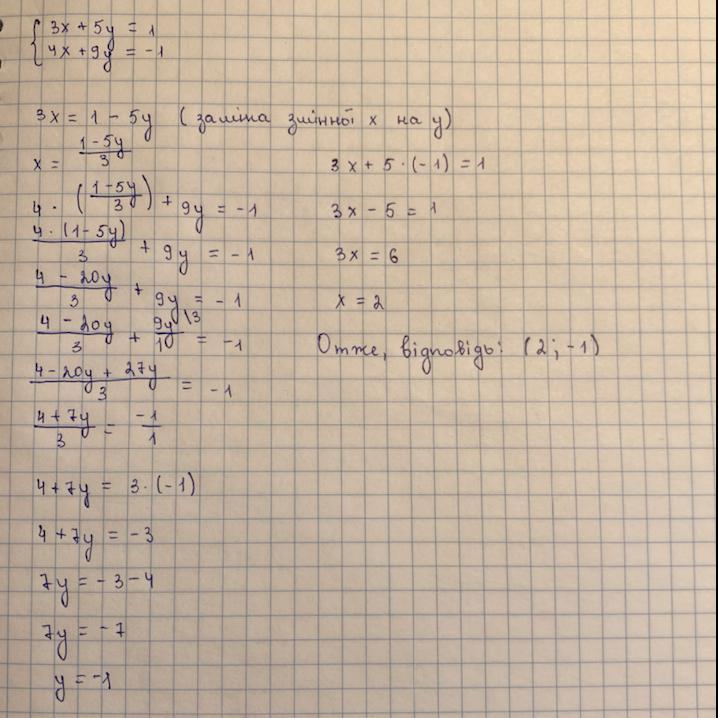 { 3x + 5y = 1
4x + 9y = -1
3x = 1 - 5y ( заміна змінної x на y)
x = (1-5y)/3
4 · ((1-5y)/3) + 9y = -1
4·(1-5y)/3 + 9y = -1
(4 - 20y)/3 + 9y = -1
(4 - 20y)/3 + 9y/1 \3 = -1
(4-20y + 27y)/3 = -1
(4+7y)/3 = -1/1
4+7y = 3·(-1)
4+7y = -3
7y = -3-4
7y = -7
y = -1
3x + 5·(-1) = 1
3x - 5 = 1
3x = 6
x = 2
Отже, відповідь: (2; -1)